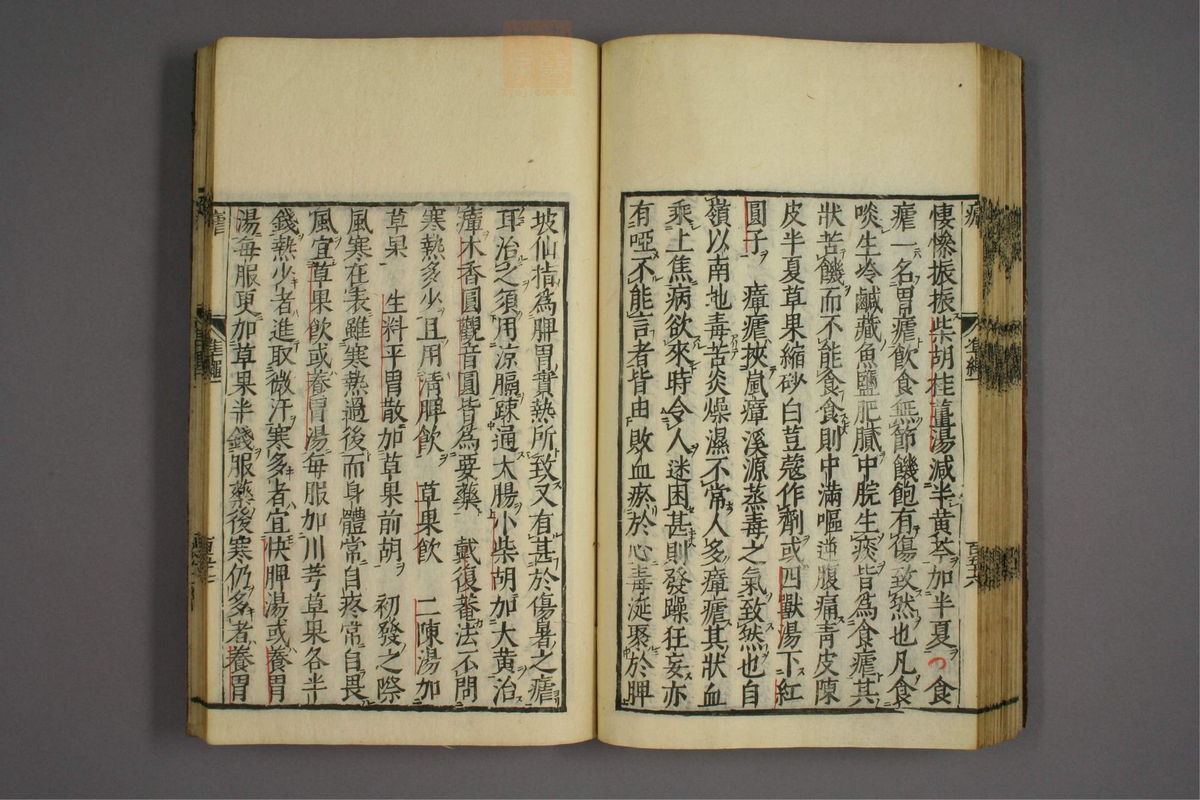 悽慘振振柴胡桂薑湯減半黃芩加半夏 食
瘧一名胃瘧飲食無節饑飽有傷致然也凡食
啖生冷鹹藏魚鹽肥膩中脘生痰皆為食瘧其
狀苦饑而不能食食則中滿嘔逆腹痛青皮陳
皮半夏草果縮砂白荳蔻作劑或四獸湯下紅
圓子 瘴瘧挾嵐瘴溪源蒸毒之氣致然也自
嶺以南地毒苦炎燥濕不常人多瘴瘧其狀血
乘上焦病欲來時令人迷困甚則發躁狂妄亦
有啞不能言者皆由敗血瘀於心毒涎聚於脾
坡仙指為脾胃實熱所致又有甚於傷暑之瘧
耳治之須用涼膈疎通大腸小柴胡加大黃治
瘴木香圓觀音圓皆為要藥 戴復菴法不問
寒熱多少且用清脾飲 草果飲 二陳湯加
草果 生料平胃散加草果前胡 初發之際
風寒在表雖寒熱過後而身體常自疼常自畏
風宜草果飲或養胃湯每服加川芎草果各半
錢熱少者進取微汗寒多者宜快脾湯或養胃
湯每服更加草果半錢服藥後寒仍多者養胃